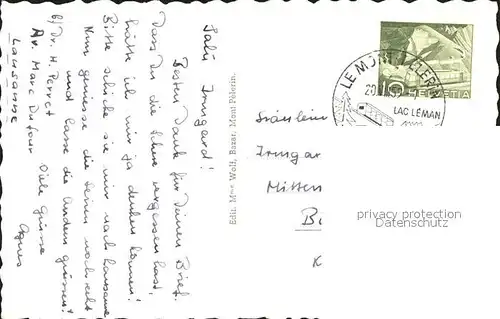 Salü Irmgard!
Besten Dank für Deinen Brief.
Dass Du die Schue vergessen hast,
hätte ich mir ja denken können!
Bitte schicke sie mir nach Lausanne
Nun geniesse die Ferien noch recht
und lasse die andern grüssen!
b/ Dr. H. Perret
Av. Marc Dufour
Lausanne
Viele Grüsse
Agnes
Edit. Mme Wolf, Bazar, Mont-Pèlerin.
LE MONT PELERIN
20
LAC LÉMAN
10 HELVETIA
Fräulein
Irmgar
Mitten
B
K
privacy protection
Datenschutz